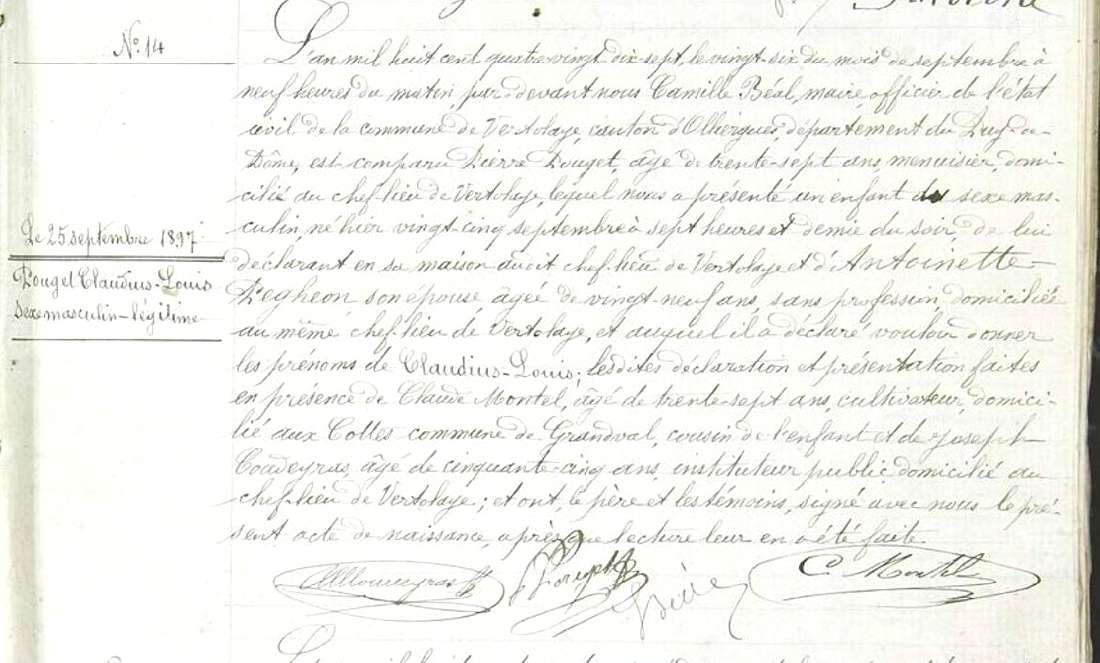 N° 14
Le 25 septembre 1897
Pouget Claudius-Louis
sexe masculin-légitime
L'an mil huit cent quatre-vingt dix-sept, le vingt-six du mois de septembre à
neuf heures du matin, par-devant nous Camille Béal, maire, officier de l'état
civil de la commune de Vertolaye, canton d'Olliergues, département du Puy-de-
Dôme, est comparu Pierre Pouget, âgé de trente-sept ans, menuisier, domi-
cilié au chef-lieu de Vertolaye, lequel nous a présenté un enfant du sexe mas-
culin, né hier vingt-cinq septembre à sept heures et demie du soir de lui
déclarant en sa maison audit chef-lieu de Vertolaye et d'Antoinette
Pegheon son épouse âgée de vingt-neuf ans, sans profession, domiciliée
au même chef-lieu de Vertolaye, et auquel il a déclaré vouloir donner
les prénoms de Claudius-Louis; lesdites déclaration et présentation faites
en présence de Claude Montel, âgé de trente-sept ans, cultivateur, domici-
lié aux Colles commune de Grandval, cousin de l'enfant et de Joseph
Coudeyras, âgé de cinquante-cinq ans, instituteur public domicilié au
chef-lieu de Vertolaye; et ont, le père et les témoins, signé avec nous le pré-
sent acte de naissance, après que lecture leur en a été faite.
Pouget
C. Montel